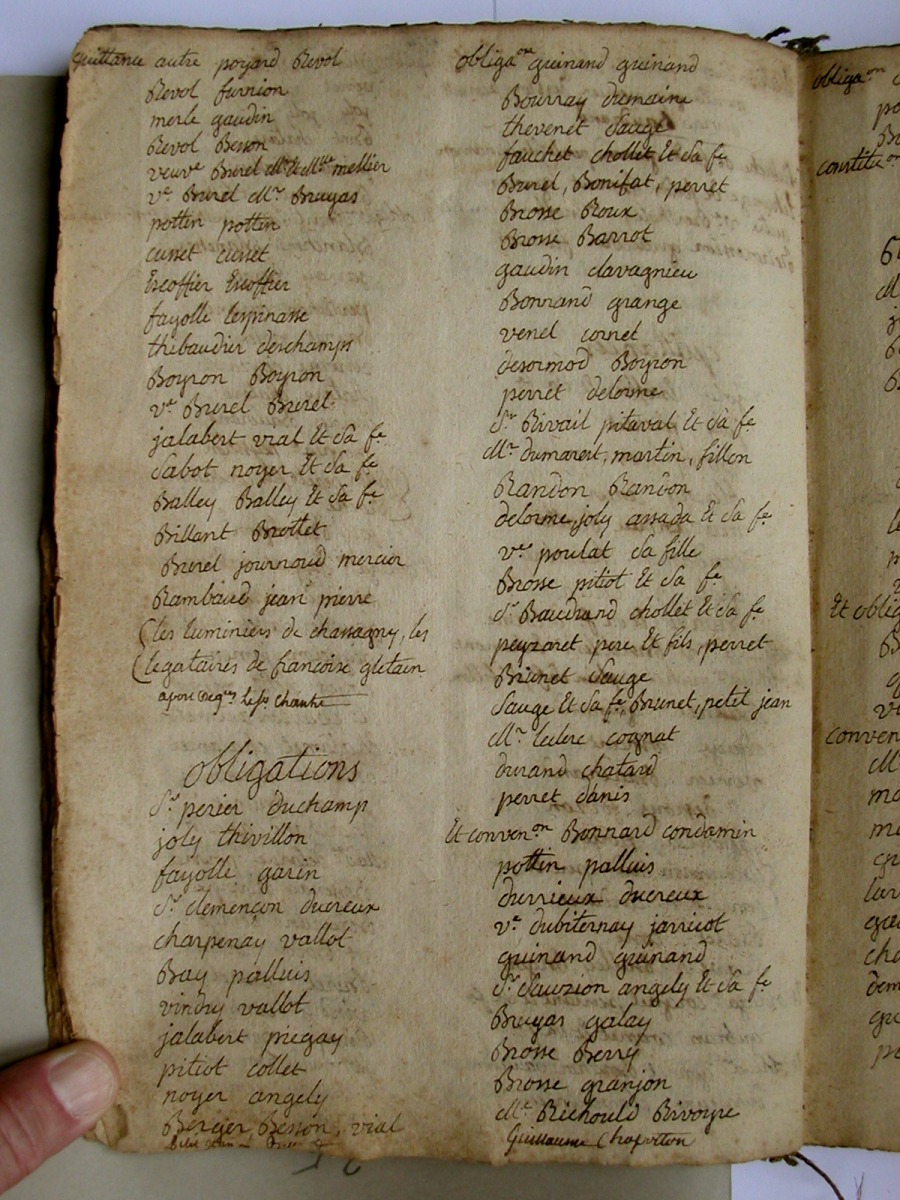 quittance autre poyard Revol
Revol furrion
merle gaudin
Revol Besson
veuve Burel Mr et Mlle mellier
ve Burel Mr Bruyas
pottin pottin
cusset cusset
Escoffier Escoffier
fayolle lespinasse
thibaudier deschamps
Boyron Boyron
ve Burel Burel
jalabert vial Et sa fe
sabot noyer Et sa fe
Balley Balley Et sa fe
Billant Brottet
Burel journoud mercier
Rambaud jean pierre
(les luminiers de chassagny, les
(legataires de francoise gletain
obligations
Sr perier duchamp
joly thivillon
fayolle garin
Sr clemençon ducreux
charpenay vallot
Bay palluis
vindry vallot
jalabert piegay
pitiot collet
noyer angely
Berger Besson, vial
obligaon guinand guinand
Bourray dumaine
thevenet sauge
fauchet chollet Et sa fe
Burel, Bonifat, perret
Brosse Roux
Brosse Barrot
gaudin clavagnieu
Bonnand grange
venel cornet
desormod Boyron
perret delorme
Sr Rivail pitaval Et sa fe
Mr dumarest, martin, fillon
Randon Randon
delorme joly assada Et sa fe
ve poulat sa fille
Brosse pitiot Et sa fe
Sr Baudrand chollet Et sa fe
peyzaret pere Et fils, perret
Brunet sauge
sauge Et sa fe, Brunet, petit jean
Mr leclerc cognat
durand chatard
perret danis
Et convenon Bonnard condamin
pottin palluis
durrieux ducreux
ve dubiternay jarricot
guinand guinand
Sr sauzion angely Et sa fe
Bruyas galay
Brosse Berry
Brosse granjon
Mr Richould Rivoyre
Guillaume Chapotton
obligaon
constituon
Et oblig
conven